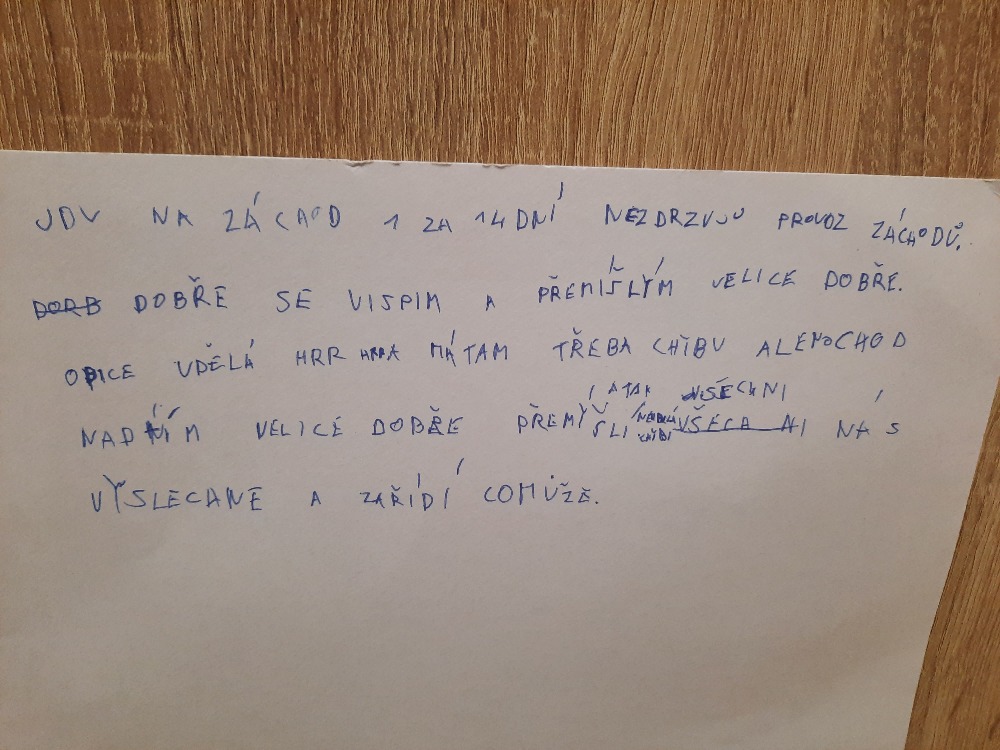 JDU NA ZÁCHOD 1 ZA 14 DNÍ NEZDRZUJU PROVOZ ZÁCHODŮ.
DORB DOBŘE SE VISPIM A PŘEMÍŠLÝM VELICE DOBŘE.
OPICE UDĚLÁ HRR HRRA MÁ TAM TŘEBA CHIBU ALE MOCHOD
A TAK VŠECHNI
NAD NÍM VELICE DOBŘE PŘEMÝŠLÍ NEDĚLÁ CHIBI VŠECH NI NÁS
VÝSLECHNE A ZAŘÍDÍ CO MŮŽE.